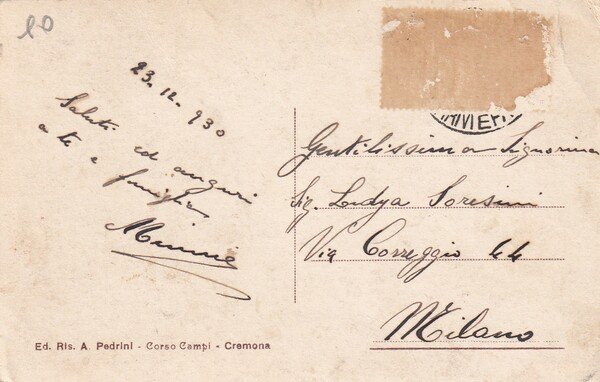 20
23.12.930
Saluti ed auguri
a te e famiglia
Minnie
Gentilissima Signorina
Sig. Lidya Soresini
Via Correggio 44
Milano
Ed. Ris. A. Pedrini - Corso Campi - Cremona